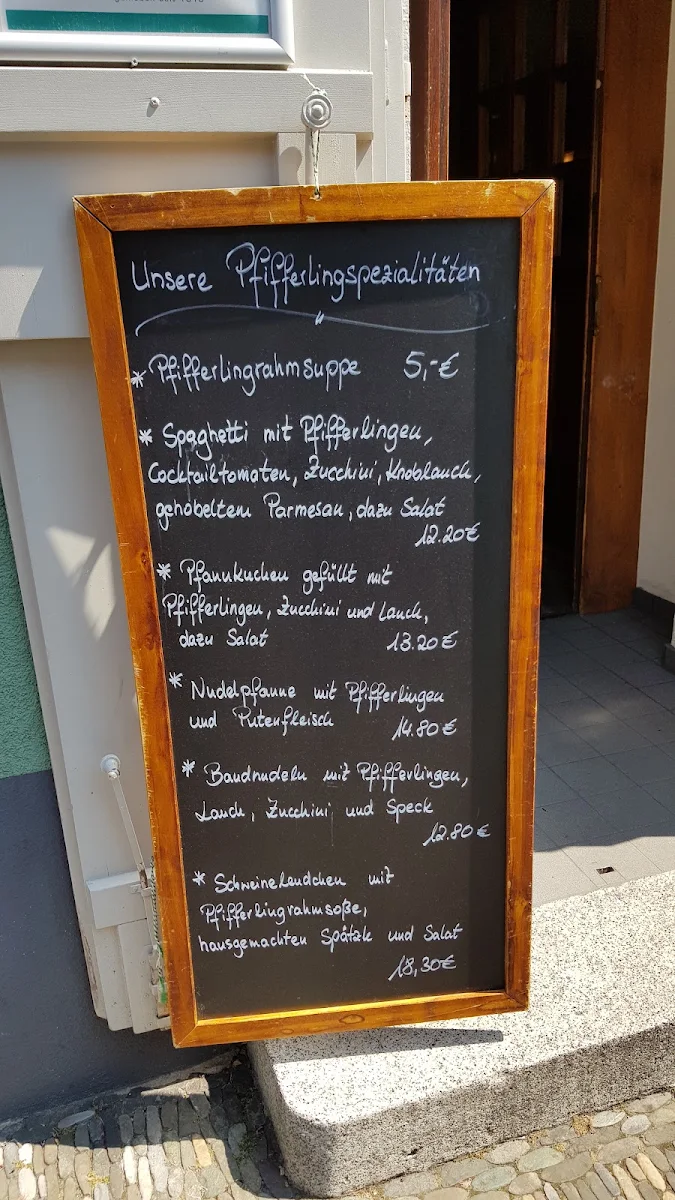 Unsere Pfifferlingspezialitäten
* Pfifferlingrahmsuppe 5,-€
* Spaghetti mit Pfifferlingen,
Cocktailtomaten, Zucchini, Knoblauch,
gehobeltem Parmesan, dazu Salat
12.20€
* Pfannkuchen gefüllt mit
Pfifferlingen, Zucchini und Lauch,
dazu Salat 13.20€
* Nudelpfanne mit Pfifferlingen
und Putenfleisch 14.80€
* Bandnudeln mit Pfifferlingen,
Lauch, Zucchini und Speck
12.80€
* Schweinelendchen mit
Pfifferlingrahmsoße,
hausgemachten Spätzle und Salat
18,30€